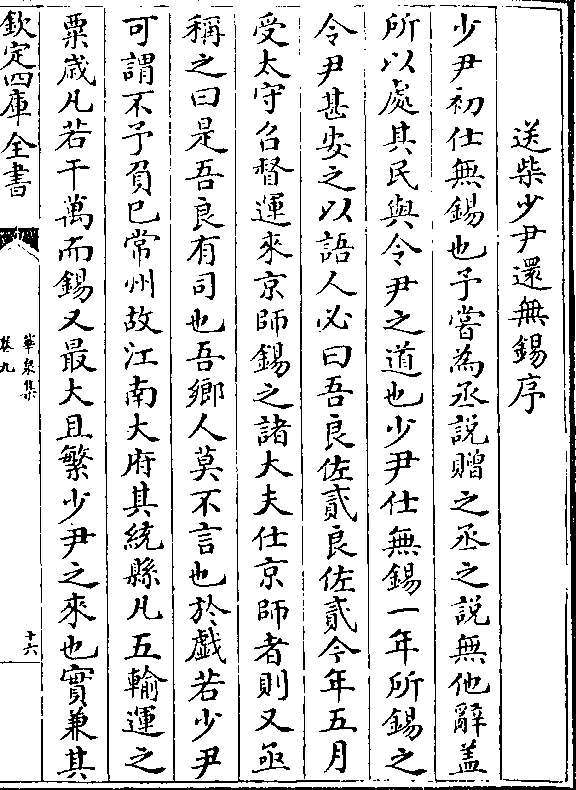 送柴少尹還無錫序
少尹初仕無錫也予嘗為丞說贈之丞之說無他辭盖
所以處其民與令尹之道也少尹仕無錫一年所錫之
令尹甚安之以語人必曰吾良佐貳良佐貳今年五月
受太守召督運來京師錫之諸大夫仕京師者則又亟
稱之曰是吾良有司也吾鄉人莫不言也於戲若少尹
可謂不予負已常州故江南大府其統縣凡五輸運之
粟歲凡若干萬而錫又最大且繁少尹之來也實兼其
欽定四庫全書
華泉集
卷九
十六